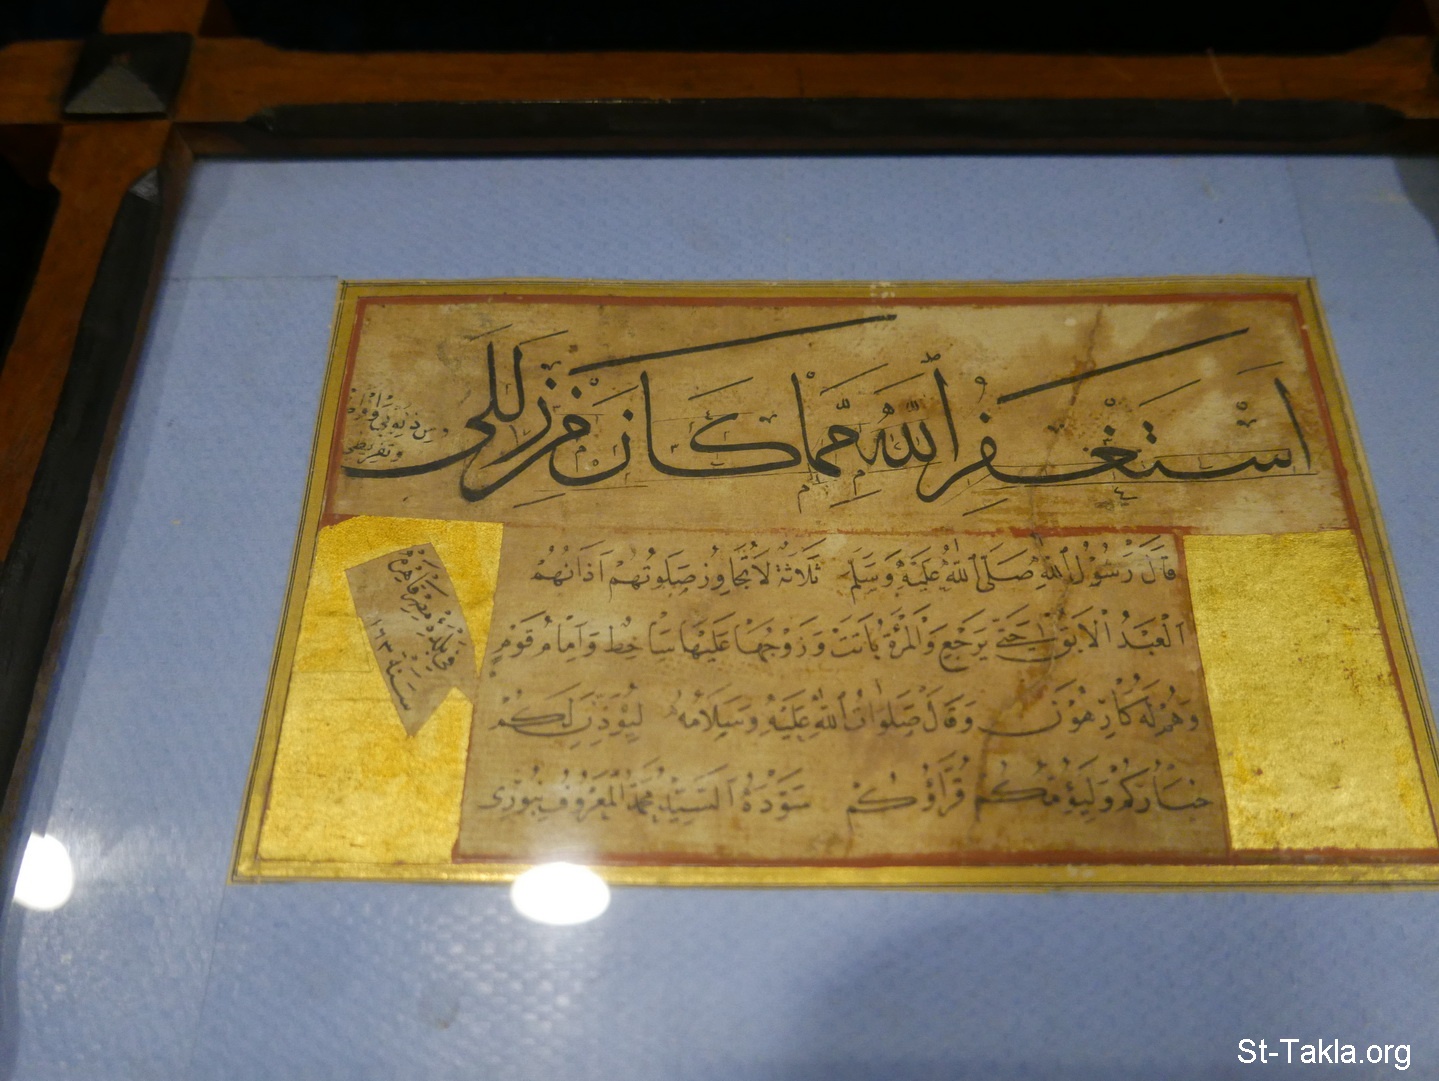 أَسْتَغْفِرُ اللّٰهَ مِمَّا كَانَ مِنْ زَلَلِي
مِن ذُنُوبِي
قَالَ رَسُولُ اللّٰهِ صَلَّى اللّٰهُ عَلَيْهِ وَسَلَّمَ ثَلَاثَةٌ لَا تُجَاوِزُ صَلٰوتُهُمْ آذَانَهُمْ
الْعَبْدُ الْآبِقُ حَتَّى يَرْجِعَ وَالْمَرْأَةُ بَاتَتْ وَزَوْجُهَا عَلَيْهَا سَاخِطٌ وَإِمَامُ قَوْمٍ
وَهُمْ لَهُ كَارِهُونَ وَقَالَ صَلَوَاتُ اللّٰهِ عَلَيْهِ وَسَلَامُهُ لِيُؤَذِّنْ لَكُمْ
خِيَارُكُمْ وَلْيَؤُمَّكُمْ قُرَّاؤُكُمْ سَوَّدَهُ السَّيِّدُ مُحَمَّدُ الْمَعْرُوفُ بِنُورِي
فِي بَلْدَةِ مِصْرِ قَاهِرَةْ
سَنَة
St-Takla.org